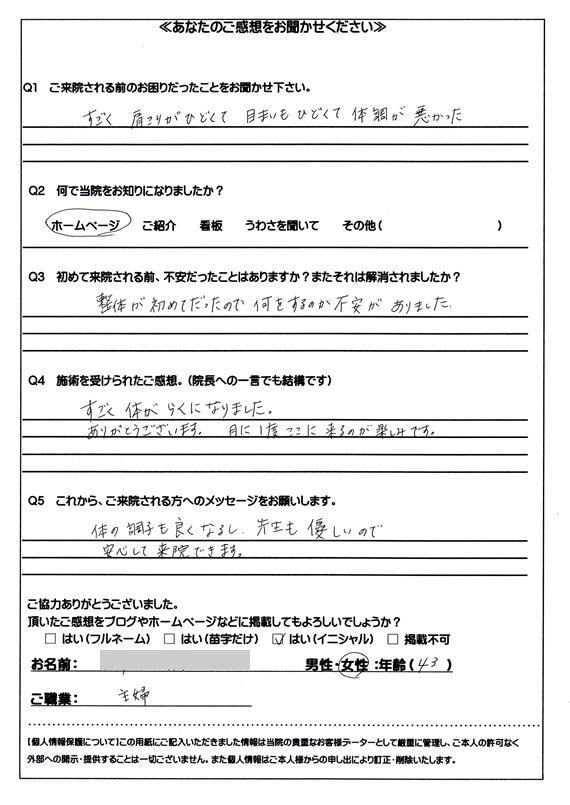 ≪あなたのご感想をお聞かせください≫
Q1 ご来院される前のお困りだったことをお聞かせ下さい。
すごく 肩こりがひどくて 目まいもひどくて 体調が 悪かった
Q2 何で当院をお知りになりましたか？
ホームページ ご紹介 看板 うわさを聞いて その他( )
Q3 初めて来院される前、不安だったことはありますか？またそれは解消されましたか？
整体が初めてだったので何をするのか不安がありました.
Q4 施術を受けられたご感想。(院長への一言でも結構です)
すごく体がらくになりました。
ありがとうございます。 月に1度ここに来るのが楽しみです。
Q5 これから、ご来院される方へのメッセージをお願いします。
体の調子も良くなるし.先生も優しいので
安心して来院できます。
ご協力ありがとうございました。
頂いたご感想をブログやホームページなどに掲載してもよろしいでしょうか？
□ はい(フルネーム) □ はい(苗字だけ) ☑ はい(イニシャル) □ 掲載不可
お名前： 男性・女性：年齢(43)
ご職業： 主婦
【個人情報保護について】この用紙にご記入いただきました情報は当院の貴重なお客様データーとして厳重に管理し、ご本人の許可なく
外部への開示・提供することは一切ございません。また個人情報はご本人様からの申し出により訂正・削除いたします。